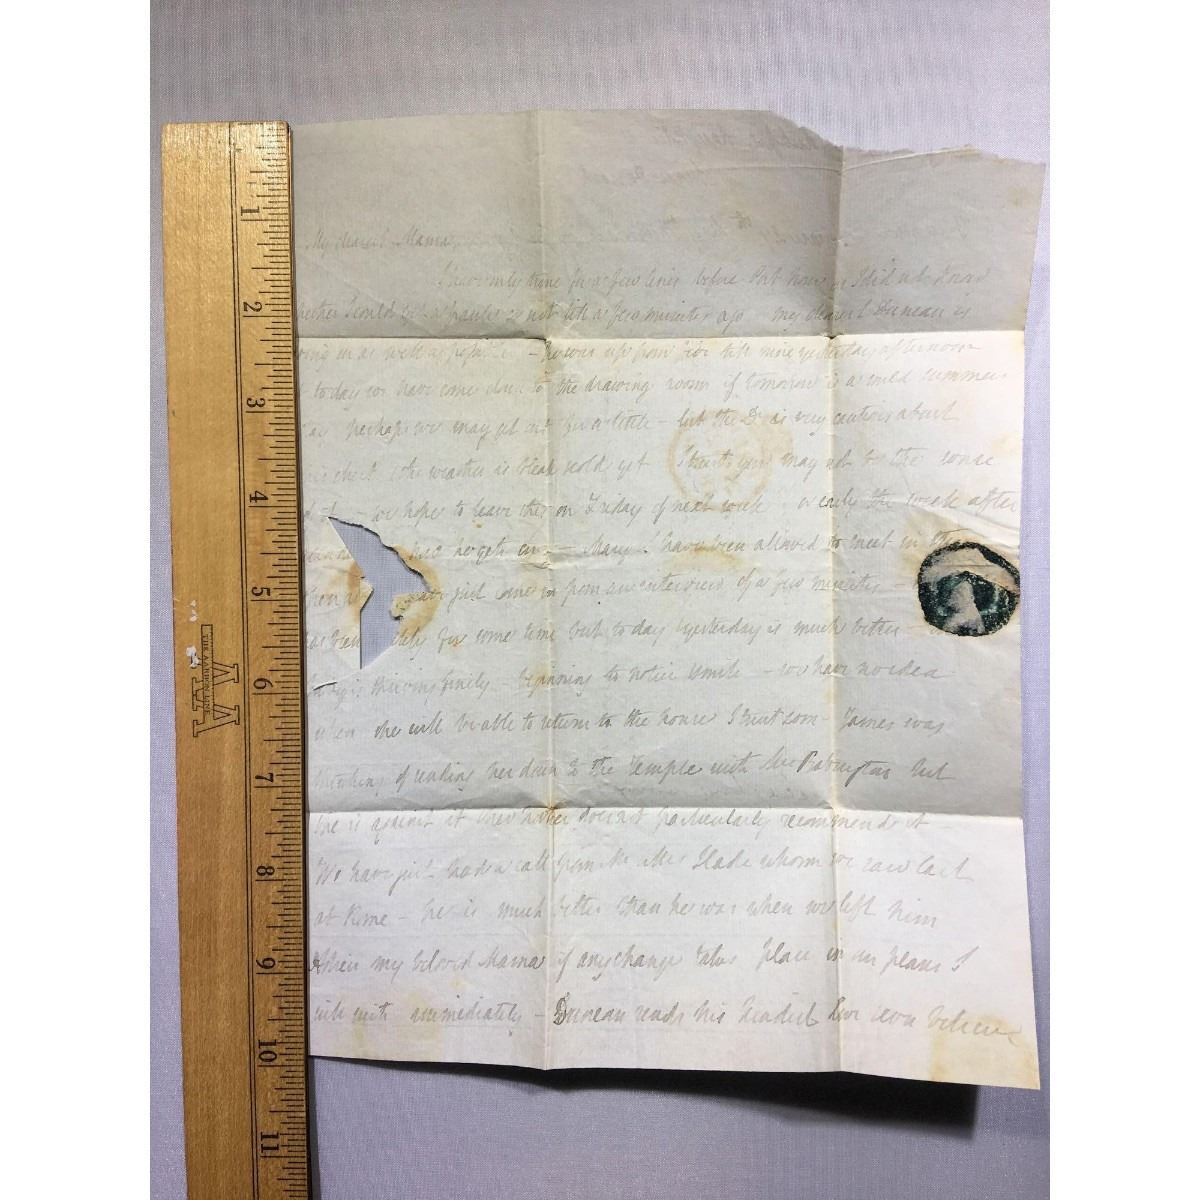 My dearest Mama
I have only time for a few lines before Post hour as I did not know
whether I could get a frank or not till a few minutes ago my dearest Duncan is
going on as well as possible - he was up from five till nine yesterday afternoon
& today we have come down to the drawing room if tomorrow is a mild summer
day perhaps we may get out for a little - but the Dr is very cautious about
his chest & the weather is bleak & cold yet I trust you may not be the worse
of it - we hope to leave this on Friday of next week or early the week after
he gets on - Mary & I have been allowed to meet in the
just come in from an interview of a few minutes -
has been for some time but today & yesterday is much better -
Baby is thriving finely beginning to notice & smile - we have no idea
when she will be able to return to the house I trust soon - James was
thinking of sending her down to the Temple with Mrs Babington but
she is against it & her Mother does not particularly recommend it -
We have just had a call from Mr Slade whom we saw last
at Rome - he is much better than he was when we left him
my beloved Mama if any change takes place in our plans I
will write immediately - Duncan sends his kindest love & ever believe
1
2
3
4
5
6
7
8
9
10
11
AA
THE AARON LINE